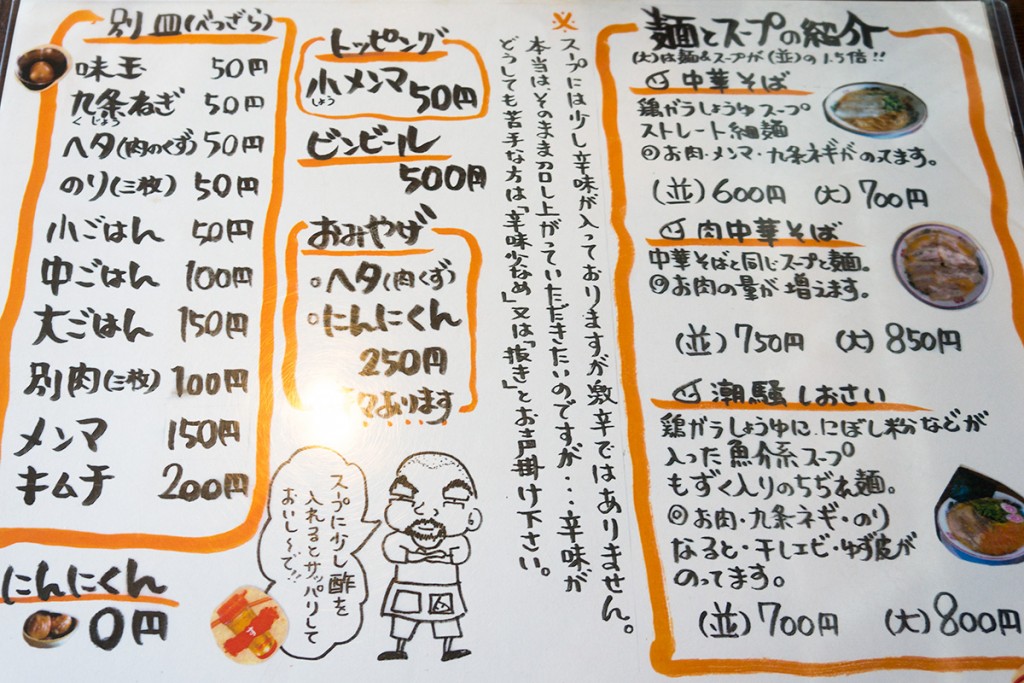 別皿(べつざら)
味玉 50円
九条ねぎ 50円
くじょう
ヘタ(肉のくず) 50円
のり(三枚) 50円
小ごはん 50円
中ごはん 100円
大ごはん 150円
別肉(三枚) 100円
メンマ 150円
キムチ 200円
にんにくん
0円
トッピング
小メンマ 50円
しょう
ビンビール
500円
おみやげ
◦ヘタ(肉くず)
◦にんにくん
250円
あります
スープに少し酢を
入れるとサッパリして
おいし〜で!!
す
※
スープには少し辛味が入っておりますが激辛ではありません。
本当は、そのまま召し上がっていただきたいのですが・・・辛味が
どうしても苦手な方は「辛味少なめ」又は「抜き」とお声掛け下さい。
麺とスープの紹介
(大)は麺&スープが(並)の1.5倍!!
中華そば
鶏ガラしょうゆスープ
ストレート細麺
◎お肉・メンマ・九条ネギがのってます。
(並)600円 (大)700円
肉中華そば
中華そばと同じスープと麺。
◎お肉の量が増えます。
(並)750円 (大)850円
潮騒しおさい
鶏ガラしょうゆに、にぼし粉などが
入った魚介系スープ
もずく入りのちぢれ麺。
◎お肉・九条ネギ・のり
なると・干しエビ・ゆず皮が
のってます。
(並)700円 (大)800円